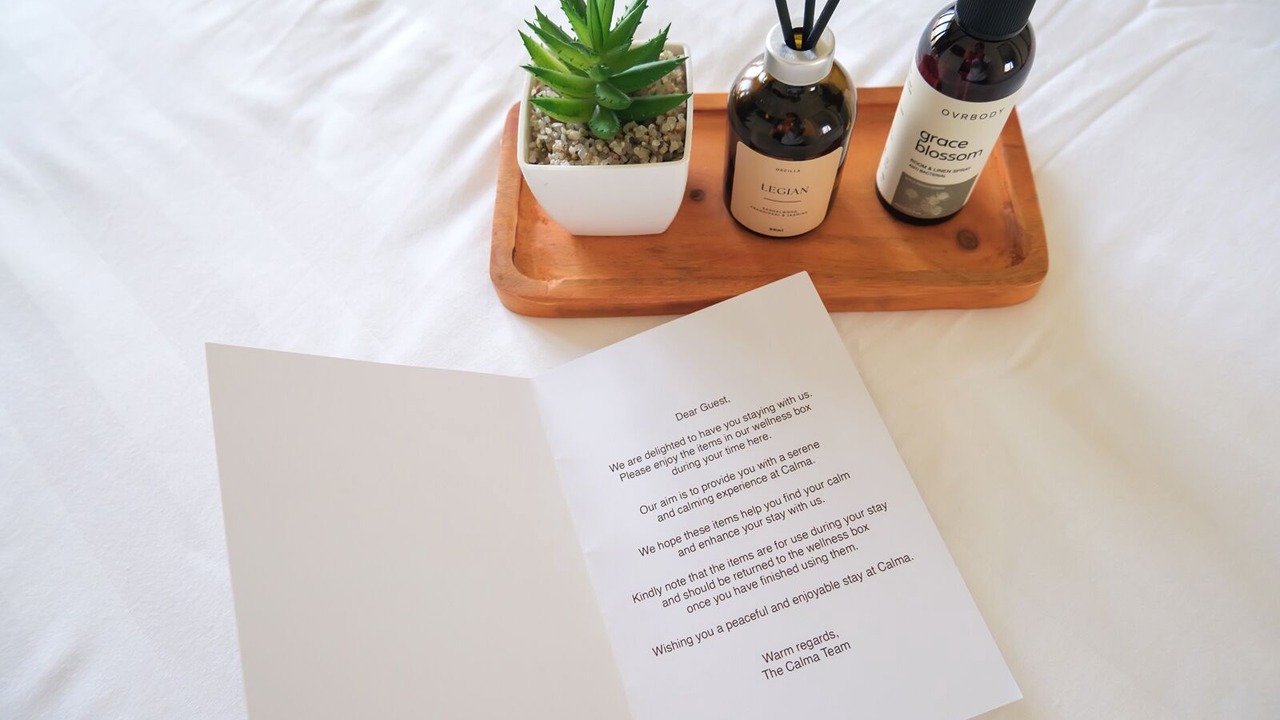 USCILLA
LEGIAN
SANDALWOOD,
FRANGIPANI & JASMINE
OVRBODY
grace
blossom
ROOM & LINEN SPRAY
ANTI-BACTERIAL
Dear Guest,
We are delighted to have you staying with us.
Please enjoy the items in our wellness box
during your time here.
Our aim is to provide you with a serene
and calming experience at Calma.
We hope these items help you find your calm
and enhance your stay with us.
Kindly note that the items are for use during your stay
and should be returned to the wellness box
once you have finished using them.
Wishing you a peaceful and enjoyable stay at Calma.
Warm regards,
The Calma Team